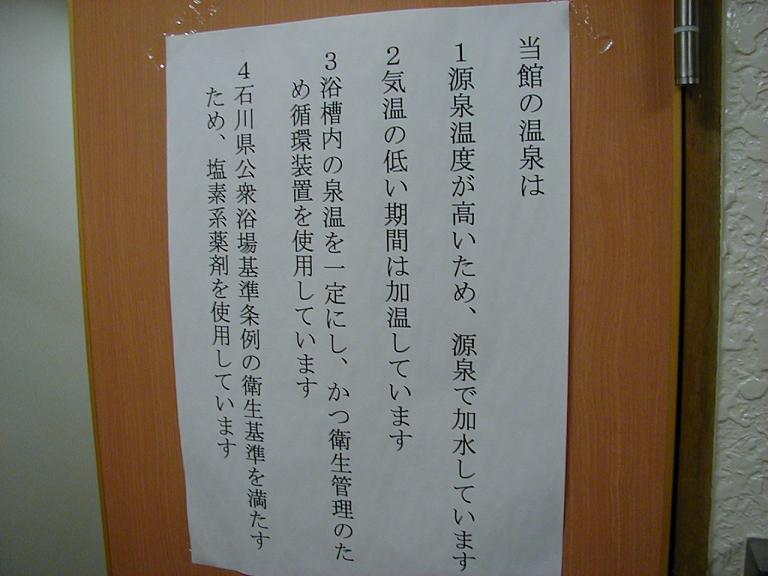 当館の温泉は
1源泉温度が高いため、源泉で加水しています
2気温の低い期間は加温しています
3浴槽内の泉温を一定にし、かつ衛生管理のた
め循環装置を使用しています
4石川県公衆浴場基準条例の衛生基準を満たす
ため、塩素系薬剤を使用しています